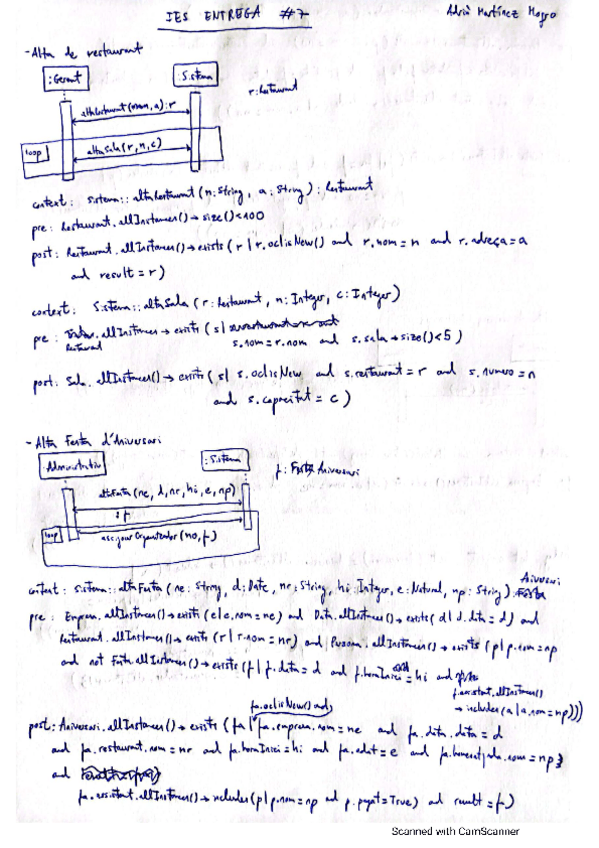 IES ENTREGA #7
Adrià Martínez Mogro
- Alta de restaurant
:Gerent
:Sistema
r: Restaurant
altaRestaurant(nom, a): r
loop
altaSala(r, n, c)
context: Sistema::altaRestaurant(n: String, a: String): Restaurant
pre: Restaurant.allInstances()→size()<100
post: Restaurant.allInstances()→exists(r | r.oclIsNew() and r.nom = n and r.adreça = a
and result = r)
context: Sistema::altaSala(r: Restaurant, n: Integer, c: Integer)
pre: .allInstances→exists(s |
Restaurant s.nom = r.nom and s.sala→size()<5)
post: Sala.allInstances()→exists(s | s.oclIsNew and s.restaurant = r and s.numero = n
and s.capacitat = c)
- Alta Festa d'Aniversari
:Administratiu
:Sistema
f: Festa Aniversari
altaFesta(ne, d, nr, hi, e, np)
: f
loop
assignarOrganitzador(no, f)
Aniversari
context: Sistema::altaFesta(ne: String, d: Date, nr: String, hi: Integer, e: Natural, np: String): Festa
pre: Empresa.allInstances()→exists(e | e.nom = ne) and Data.allInstances()→exists(d | d.data = d) and
Restaurant.allInstances()→exists(r | r.nom = nr) and Persona.allInstances()→exists(p | p.nom = np
and not Festa.allInstances()→exists(f | f.data = d and f.horaInici = hi and
f.assistent.allInstances()
→includes(a | a.nom = np)))
fa.oclIsNew() and
post: Aniversari.allInstances()→exists(fa | fa.empresa.nom = ne and fa.data.data = d
and fa.restaurant.nom = nr and fa.horaInici = hi and fa.edat = e and fa.homenatjada.nom = np
and
fa.assistent.allInstances()→includes(p | p.nom = np and p.pagat = True) and result = fa)
Scanned with CamScanner